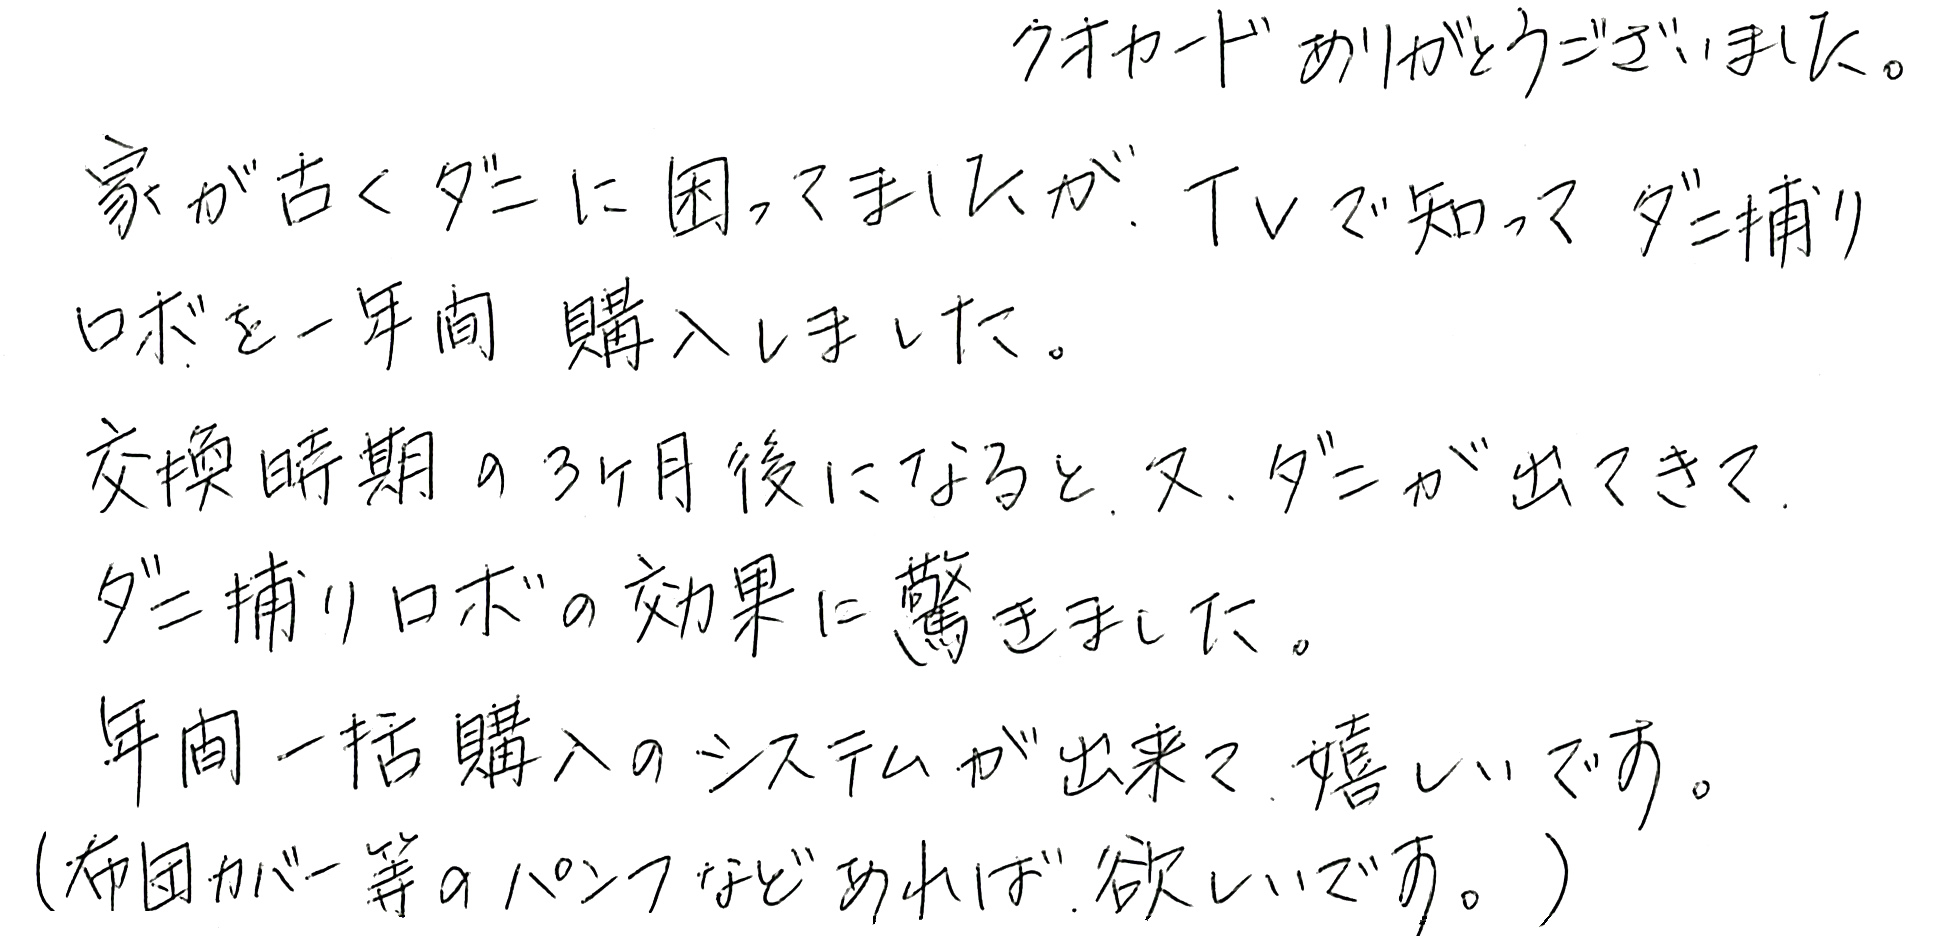 クオカードありがとうございました。
家が古くダニに困ってましたが、TVで知ってダニ捕り
ロボを一年間 購入しました。
交換時期の3ヶ月後になると、又、ダニが出てきて、
ダニ捕りロボの効果に驚きました。
年間一括購入のシステムが出来て、嬉しいです。
(布団カバー等のパンフなどあれば、欲しいです。)